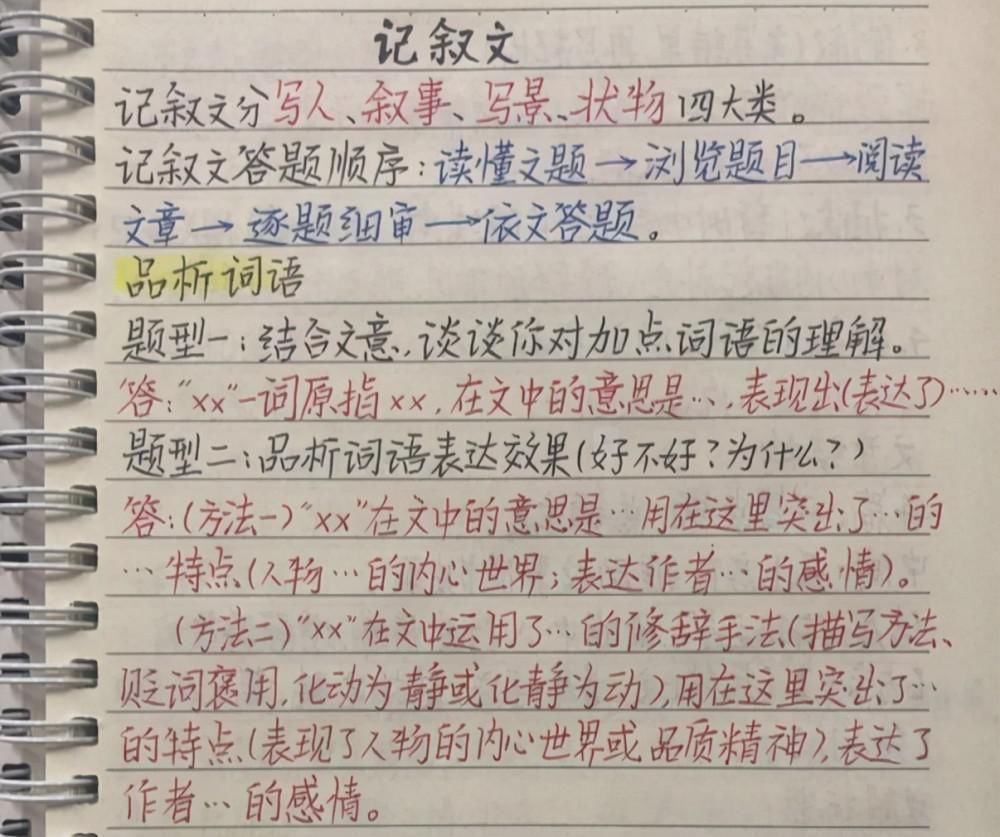 记叙文
记叙文分写人、叙事、写景、状物四大类。
记叙文答题顺序：读懂文题→浏览题目→阅读
文章→逐题细审→依文答题。
品析词语
题型一：结合文意，谈谈你对加点词语的理解。
答："xx"一词原指xx，在文中的意思是…，表现出(表达了)……
题型二：品析词语表达效果(好不好？为什么？)
答：(方法一)"xx"在文中的意思是…用在这里突出了…的
…特点(人物…的内心世界；表达作者…的感情)。
(方法二)"xx"在文中运用了…的修辞手法(描写方法、
贬词褒用，化动为静或化静为动)，用在这里突出了…
的特点(表现了人物的内心世界或品质精神)，表达了
作者…的感情。